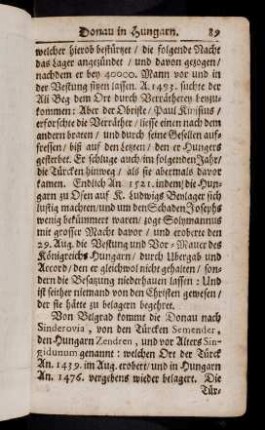 Donau in Hungarn. 89
welcher hierob bestürtzet / die folgende Nacht
das Lager angezündet / und davon gezogen /
nachdem er bey 40000. Mann vor und in
der Vestung sitzen lassen. A. 1493. suchte der
Ali Beg dem Ort durch Verrätherey beyzu-
kommen: Aber der Obriste / Paul Kinisius /
erforschte die Verräther / liesse einen nach dem
andern braten / und durch seine Gesellen auf-
fressen / biß auf den Letzen / den er Hungers
gesterbet. Er schluge auch / im folgenden Jahr /
die Türcken hinweg / als sie abermals davor
kamen. Endlich An. 1521. indem die Hun-
garn zu Ofen auf K. Ludwigs Beylager sich
lustig machten / und um den Schaden Josephs
wenig bekümmert waren / zoge Solymannus
mit grosser Macht davor / und eroberte den
29. Aug. die Vestung und Vor-Mauer des
Königreichs Hungarn / durch Ubergab und
Accord / den er gleichwol nicht gehalten / son-
dern die Besatzung niederhauen lassen: Und
ist seither niemand von den Christen gewesen /
der sie hätte zu belagern begehret.
Von Belgrad kommt die Donau nach
Sinderovia, von den Türcken Semender,
den Hungarn Zendren, und vor Alters Sin-
gidunum genannt: welchen Ort der Türck
An. 1439. im Aug. erobert / und in Hungarn
An. 1476. vergebens wieder belagert. Die
Tür-